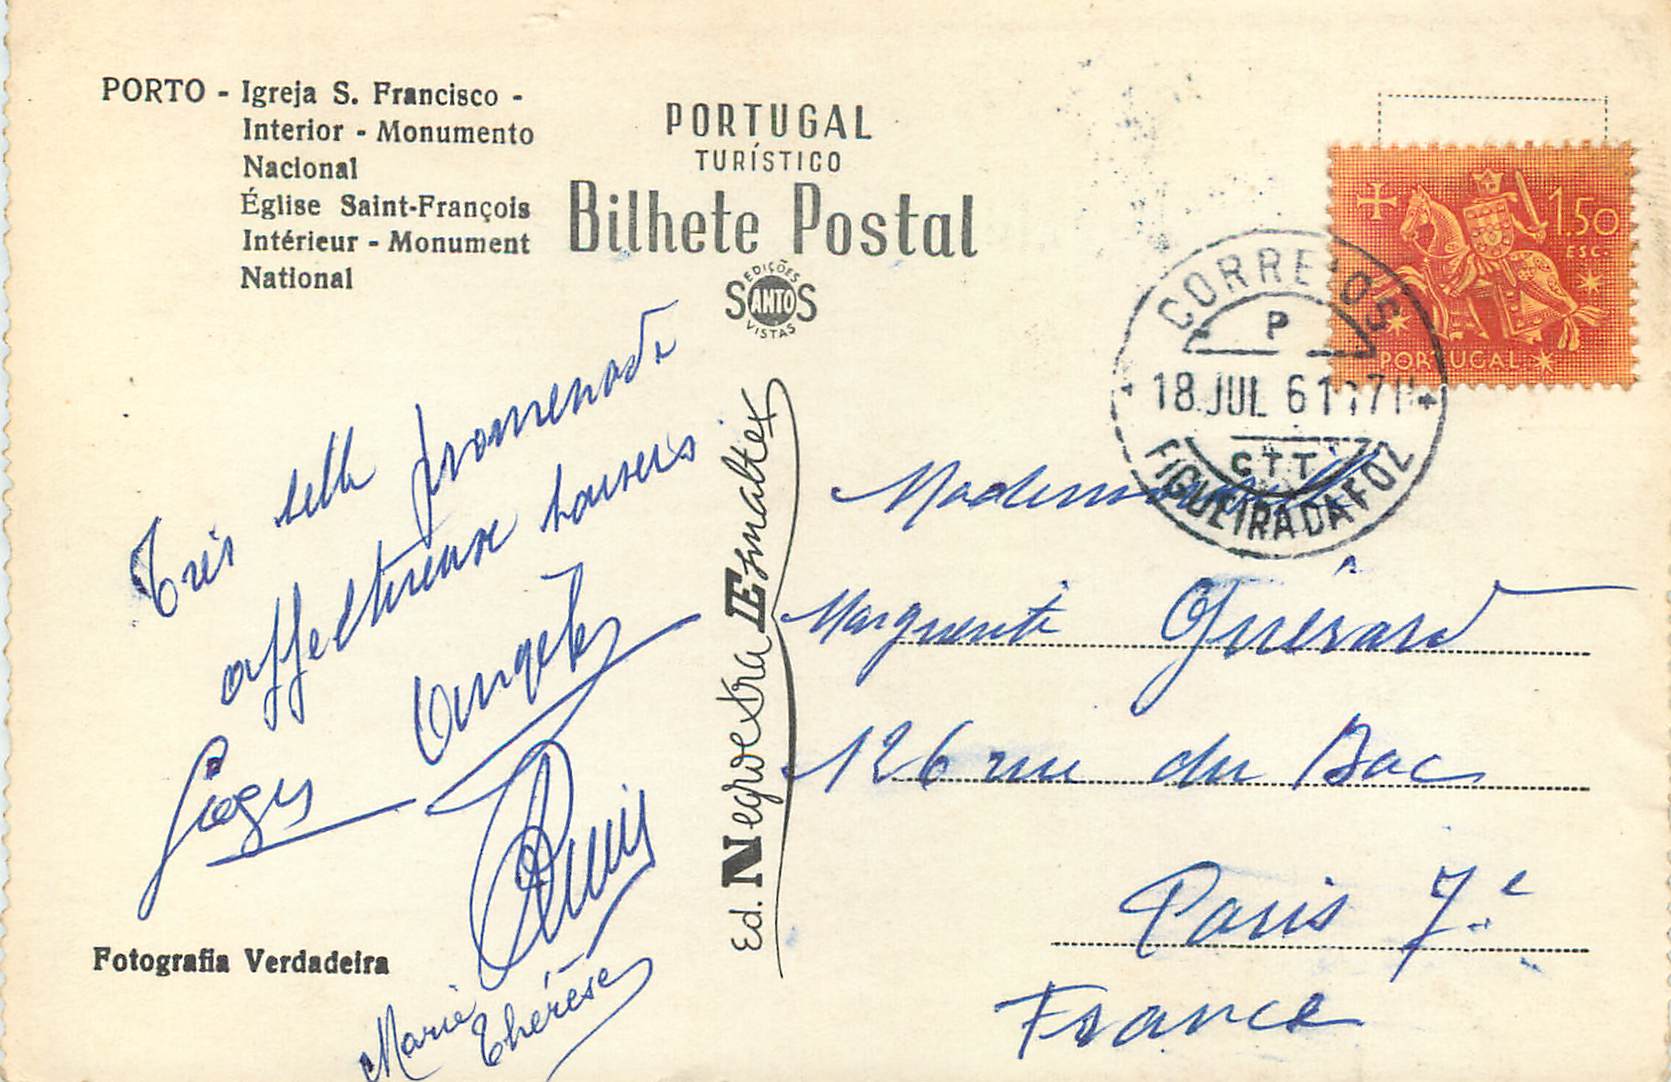 PORTO - Igreja S. Francisco -
Interior - Monumento
Nacional
Église Saint-François
Intérieur - Monument
National
PORTUGAL
TURÍSTICO
Bilhete Postal
EDIÇÕES
SANTOS
VISTAS
1$50
ESC.
PORTUGAL
CORREIOS
P
18 JUL 61
CTT
FIGUEIRA DA FOZ
Très belle promenade
affectueuse
Marie
Thérèse
Fotografia Verdadeira
Ed. Negroextra IEsmaltex
Mademoiselle
Marguerite Guérard
126 rue du Bac
Paris 7.e
France